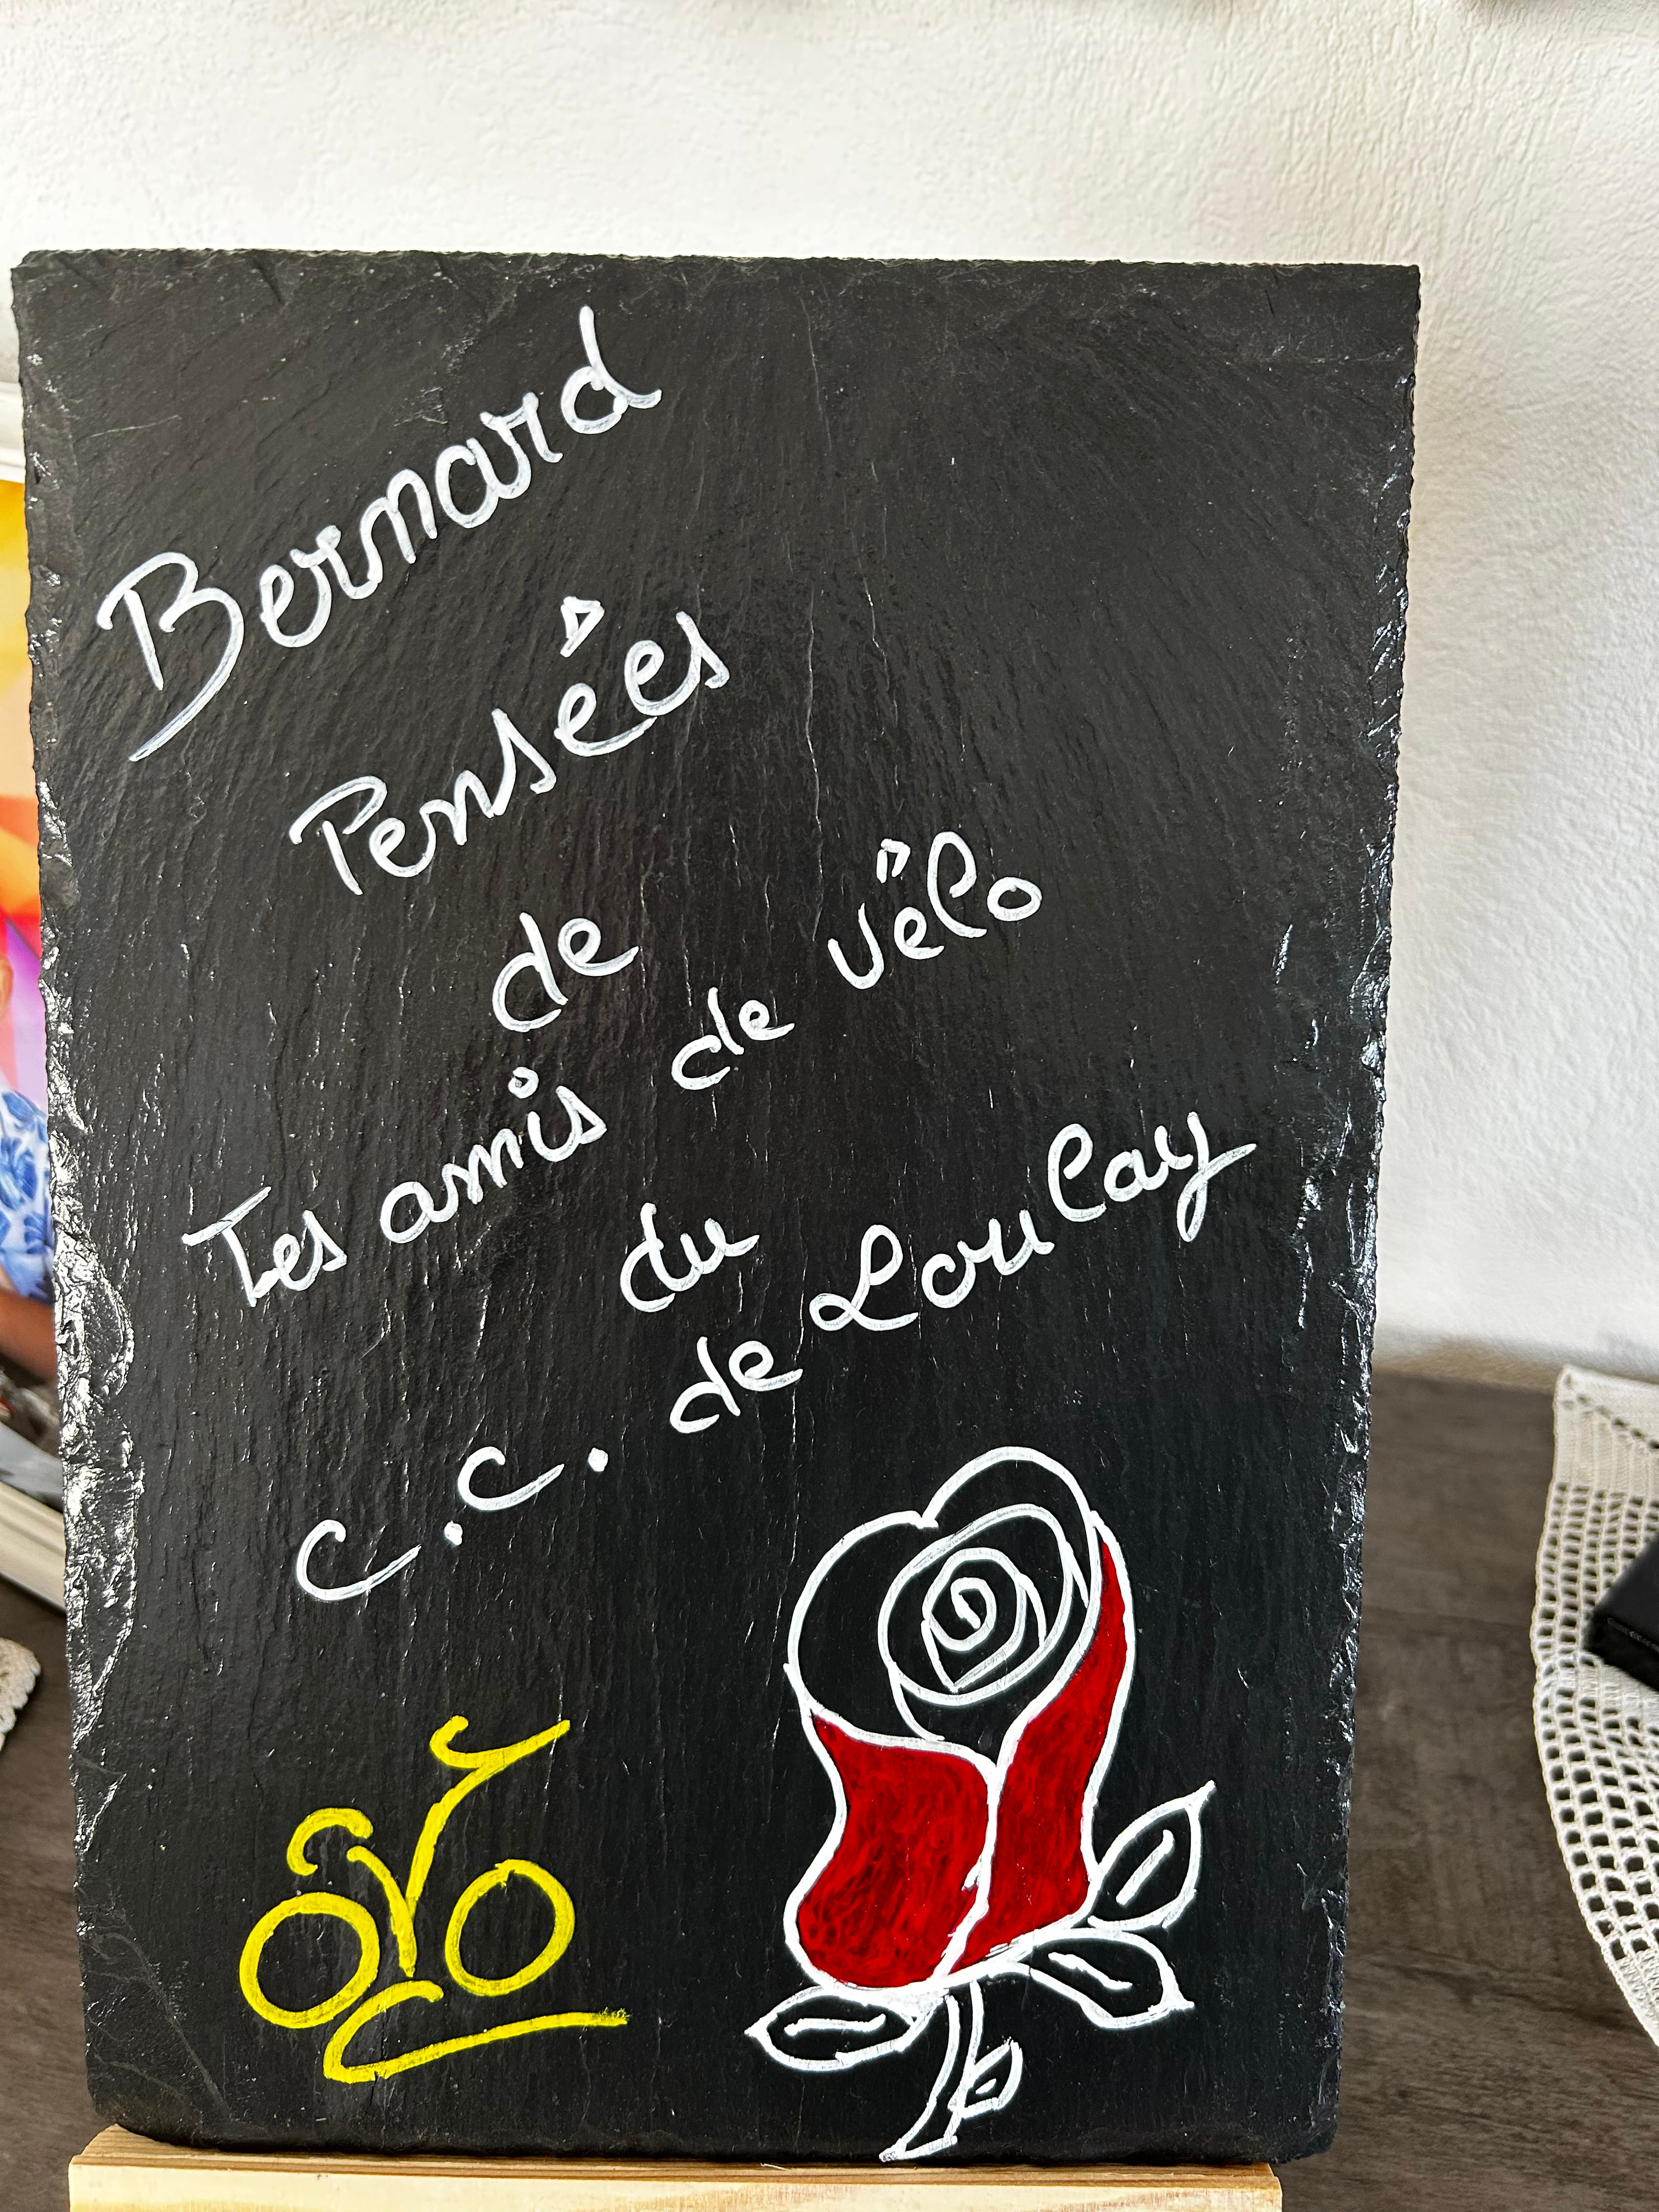 Bernard
Pensées
de
Tes amis de vélo
du
C.C. de Loulay